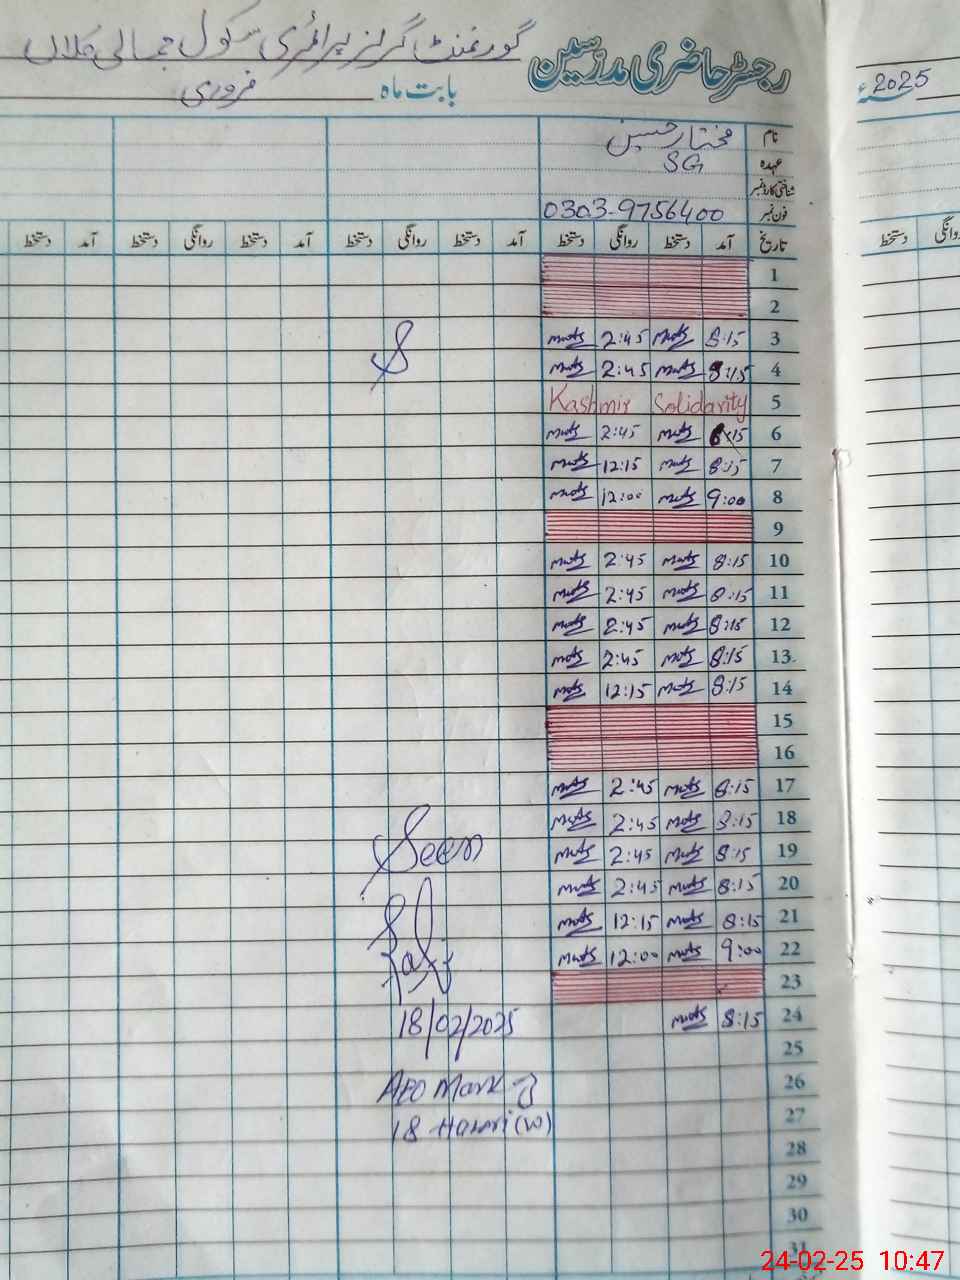 گورنمنٹ گرلز پرائمری سکول جمالی کلاں
رجسٹر حاضری مدرسین
بابت ماہ فروری
2025ء
نام مختار حسین
عہدہ SG
شناختی کارڈ نمبر
فون نمبر 0303-9756400
تاریخ آمد دستخط روانگی دستخط آمد دستخط روانگی دستخط آمد دستخط روانگی دستخط آمد دستخط
روانگی دستخط
1
2
3 8:15 2:45
4 8:15 2:45
5 Kashmir Solidarity
6 8:15 2:45
7 8:15 12:15
8 9:00 12:00
9
10 8:15 2:45
11 8:15 2:45
12 8:15 2:45
13 8:15 2:45
14 8:15 12:15
15
16
17 8:15 2:45
18 8:15 2:45
Seen
19 8:15 2:45
20 8:15 2:45
21 8:15 12:15
22 9:00 12:00
23
24 8:15
18/02/2025
25
26
AEO Mark
27
18 (W)
28
29
30
31
24-02-25 10:47